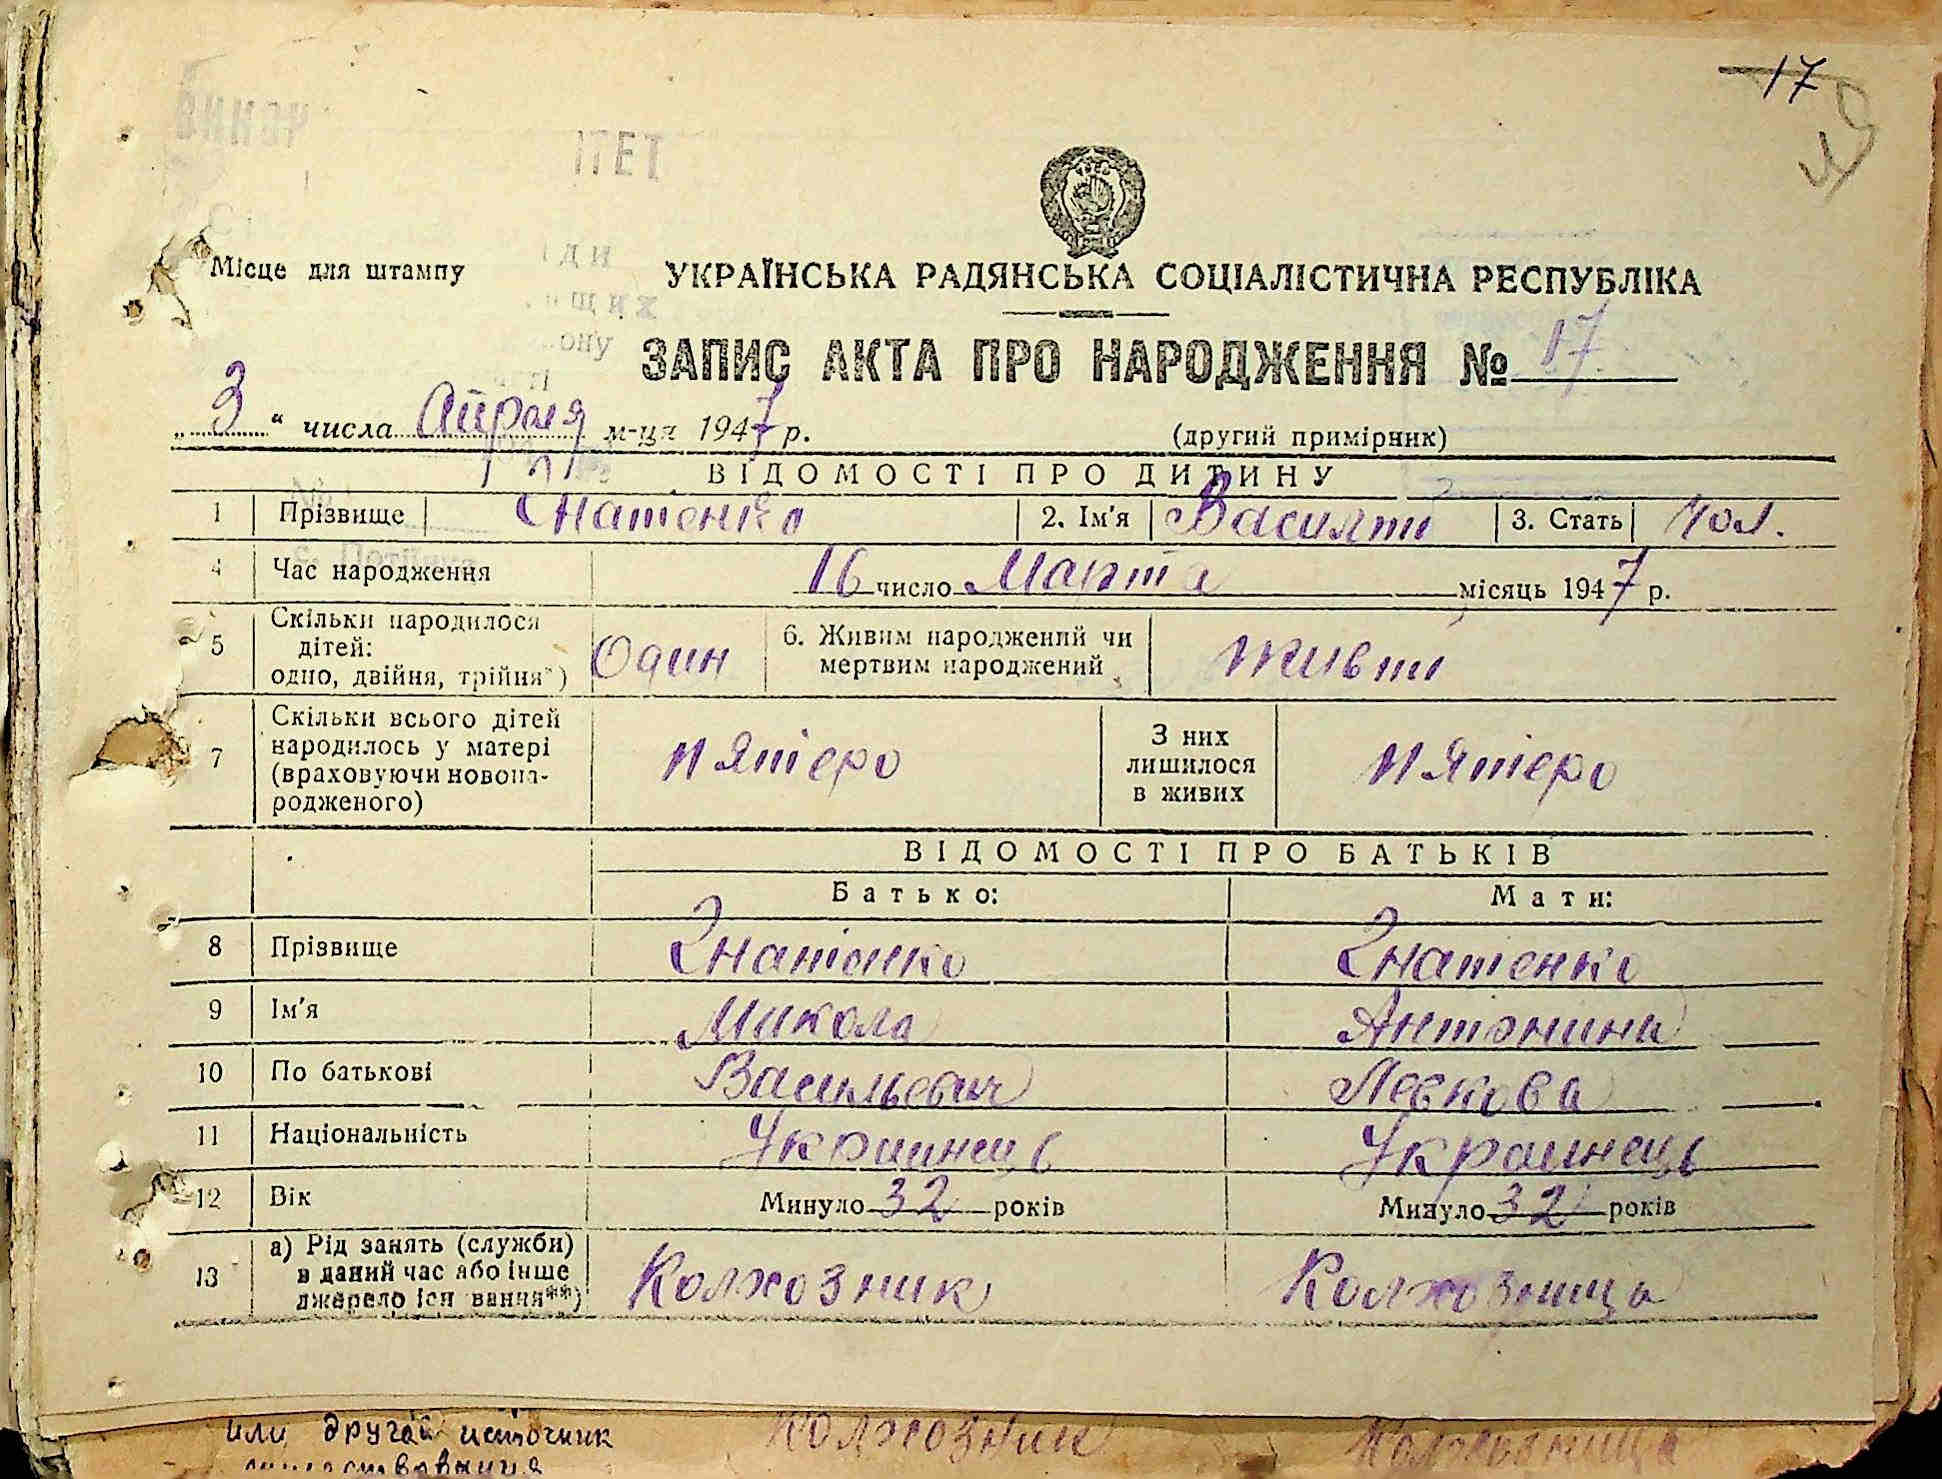 17
ПЕТ
Місце для штампу
УКРАЇНСЬКА РАДЯНСЬКА СОЦІАЛІСТИЧНА РЕСПУБЛІКА
ЗАПИС АКТА ПРО НАРОДЖЕННЯ № 17
„3“ числа Апреля м-ця 1947 р. (другий примірник)
ВІДОМОСТІ ПРО ДИТИНУ
1 Прізвище Гнатенко 2. Ім'я Василий 3. Стать
4 Час народження 16 число Марта місяць 1947 р.
5 Скільки народилося дітей: одно, двійня, трійня*) Один 6. Живим народжений чи мертвим народжений живий
7 Скільки всього дітей народилось у матері (враховуючи новонародженого) пятеро З них лишилося в живих пятеро
ВІДОМОСТІ ПРО БАТЬКІВ
Батько: Мати:
8 Прізвище Гнатенко Гнатенко
9 Ім'я Микола Антонина
10 По батькові Васильевич Левкова
11 Національність Украинець Украинець
12 Вік Минуло 32 років Минуло 32 років
13 а) Рід занять (служби) в даний час або інше джерело існування**) Колхозник Колхозница
или другой источник Колхозник Колхозница
существования